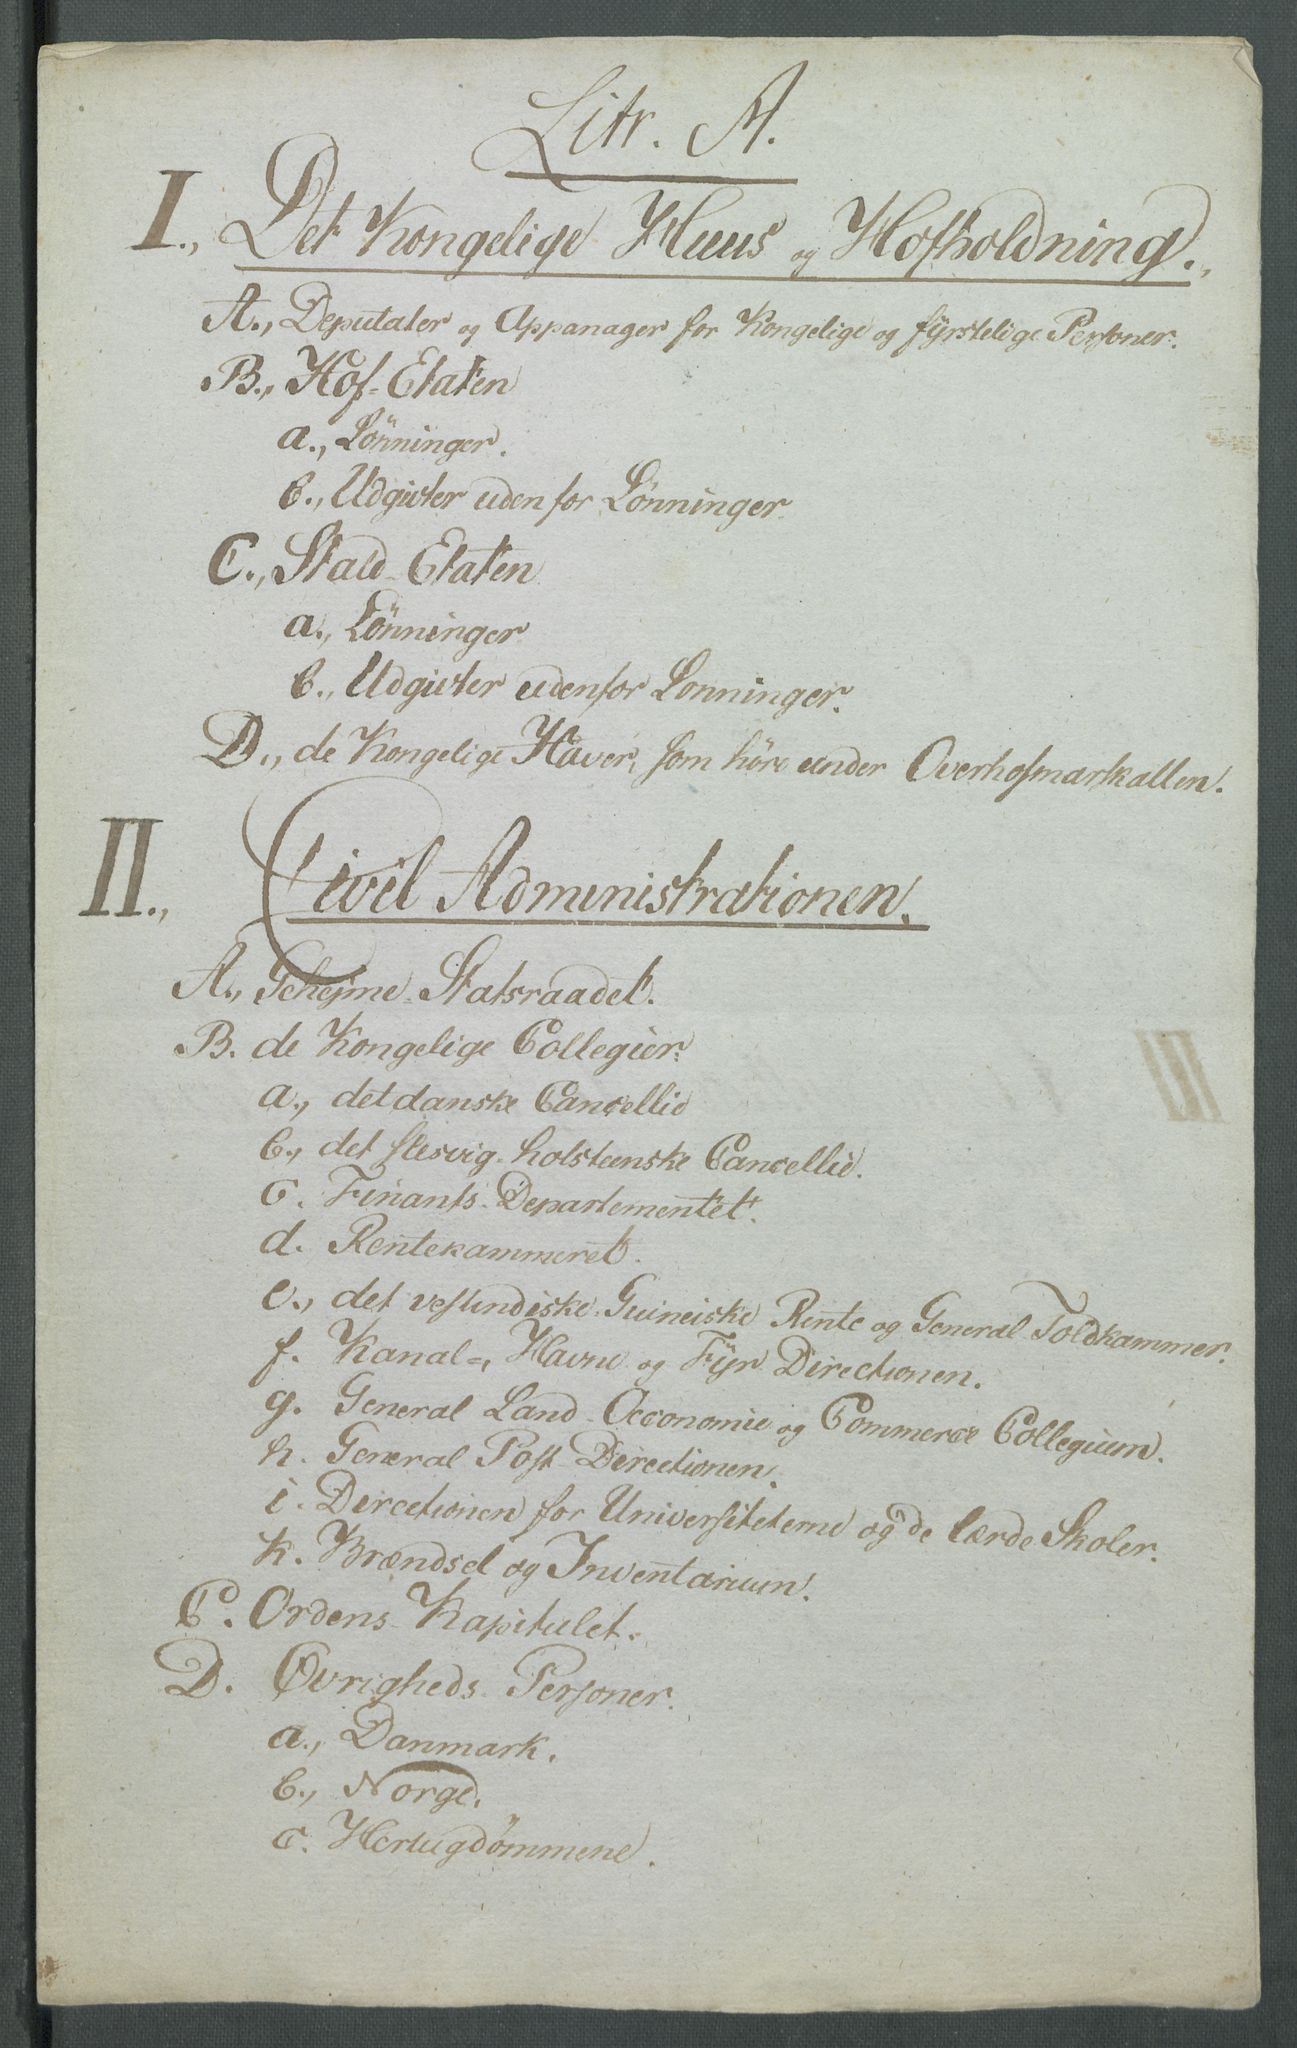 Litr. A.
I., Det Kongelige Huus og Hofholdning.,
A., Deputater og Appanager for Kongelige og fÿrstelige Personer.
B., Hof-Etaten
a., Lönninger.
b., Udgivter udenfor Lönninger
C., Stald-Etaten
a., Lönninger
b., Udgivter udenfor Lonninger.
D., de Kongelige Haver, som höre under Overhofmarskallen.
II., Civil Administrationen.
A., Gehejme-Statsraadet.
B. de Kongelige Collegier.
a., det danske Cancellie
b., det slesvig-holsteenske Cancellie.
c. Finants-Departementet.
d. Rentekammeret.
e., det vestindiske-Guineiske Rente og General-Toldkammer.
f. Kanal-, Havne og Fÿr-Directionen.
g. General Land-Oeconomie og Commerce Collegium.
h. General Post-Directionen.
i. Directionen for Universiteterne og de lærde Skoler.
k. Brændsel og Inventarium.
C. Ordens-Kapitulet.
D. Øvrigheds-Personer.
a., Danmark.
b., Norge.
c. Hertugdömmene.